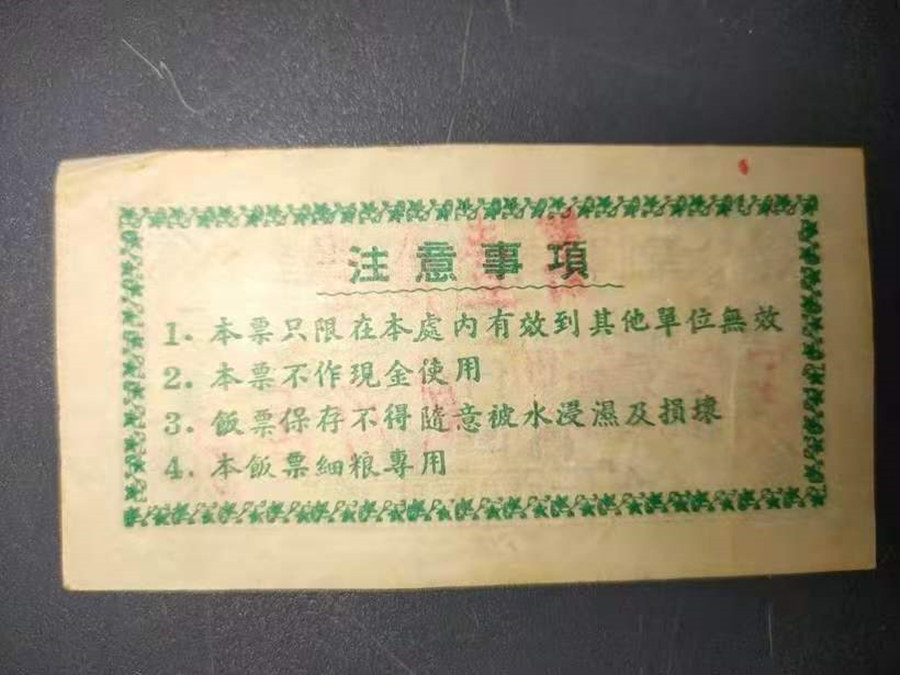 注意事項
1. 本票只限在本處內有效到其他單位無效
2. 本票不作現金使用
3. 飯票保存不得隨意被水浸濕及損壞
4. 本飯票細粮專用